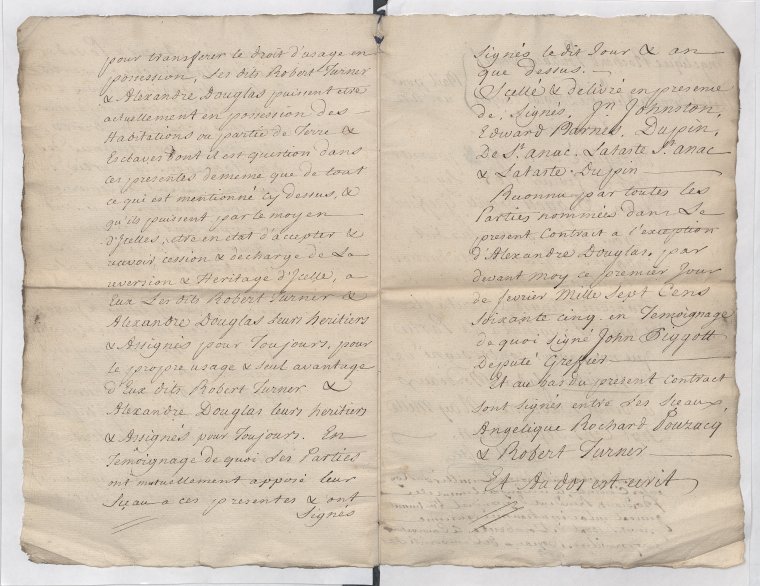 pour transferer le droit d'usage en
possession, Les dits Robert Turner
& Alexandre Douglas puissent etre
actuellement en possession des
Habitations ou partie de Terre &
Esclaves dont il est question dans
ces presentes de meme que de tout
ce qui est mentionné cy dessus, &
qu'ils puissent par le moyen
d'Icelles, etre en état d'accepter &
recevoir cession & decharge de La
reversion & Heritage d'Icelle, a
Eux Les dits Robert Turner &
Alexandre Douglas leurs heritiers
& Assignés pour Toujours, pour
le propre usage & seul avantage
d'Eux dits Robert Turner &
Alexandre Douglas leurs heritiers
& Assignés pour Toujours. En
Temoignage de quoi Les Parties
ont mutuellement apposé leur
Sceau a ces presentes & ont
Signés
signés le dit Jour & an
que dessus. —
Scellé & délivré en presence
de, Signés, Jn Johnston,
Edward Barnes, Duppin,
De St anac, Lataste St anac
& Lataste Duppin —
Reconnu par toutes les
Parties nommées dans Le
present Contract a l'exception
d'Alexandre Douglas, par
devant moy ce premier Jour
de fevrier Mille Sept Cens
Soixante cinq, en Temoignage
de quoi signé John Piggott
Deputé Grefier —
Et au bas du present contract
sont signés entre les Sceaux,
Angelique Rochard Pouzacq
& Robert Turner —
Et Au dos est ecrit